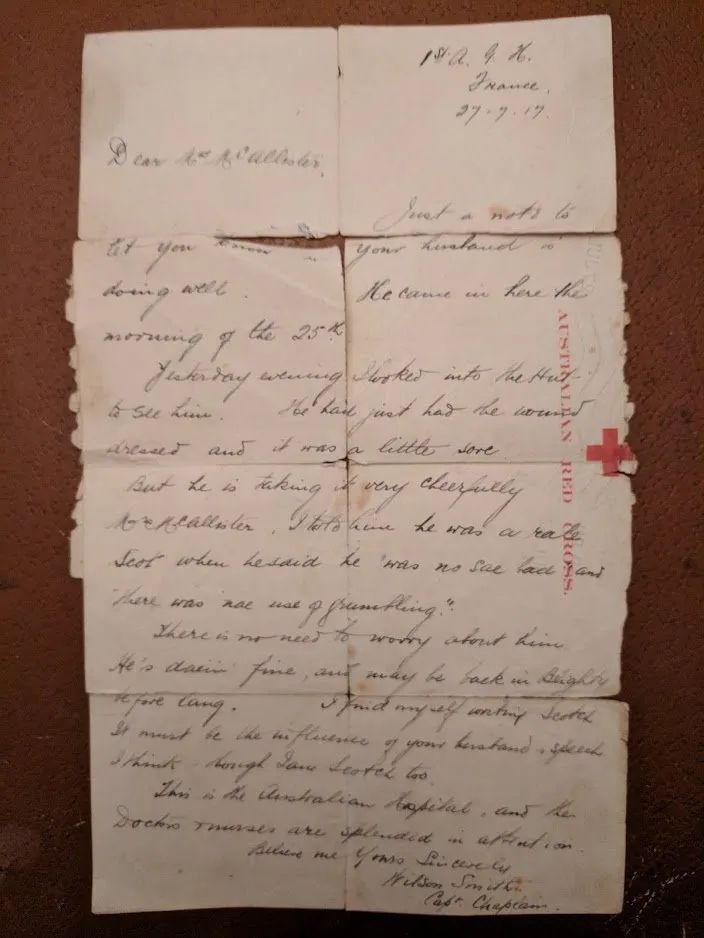 1st A. G. H.
France.
27-9-17.
Dear Mrs McAllister,
Just a note to
let you know your husband is
doing well. He came in here the
morning of the 25th.
Yesterday evening I looked into the Hut
to see him. He had just had the wound
dressed and it was a little sore.
But he is taking it very cheerfully
Mrs McAllister. I told him he was a rale
Scot when he said he "was no sae bad and
there was nae use of grumbling".
There is no need to worry about him.
He's daein' fine, and may be back in Blighty
before lang. I find myself writing Scotch
It must be the influence of your husband's speech
I think - though I am Scotch too.
This is the Australian Hospital, and the
Doctors & nurses are splendid in attention.
Believe me Yours Sincerely
Wilson Smith.
Capt. Chaplain.
AUSTRALIAN RED CROSS.